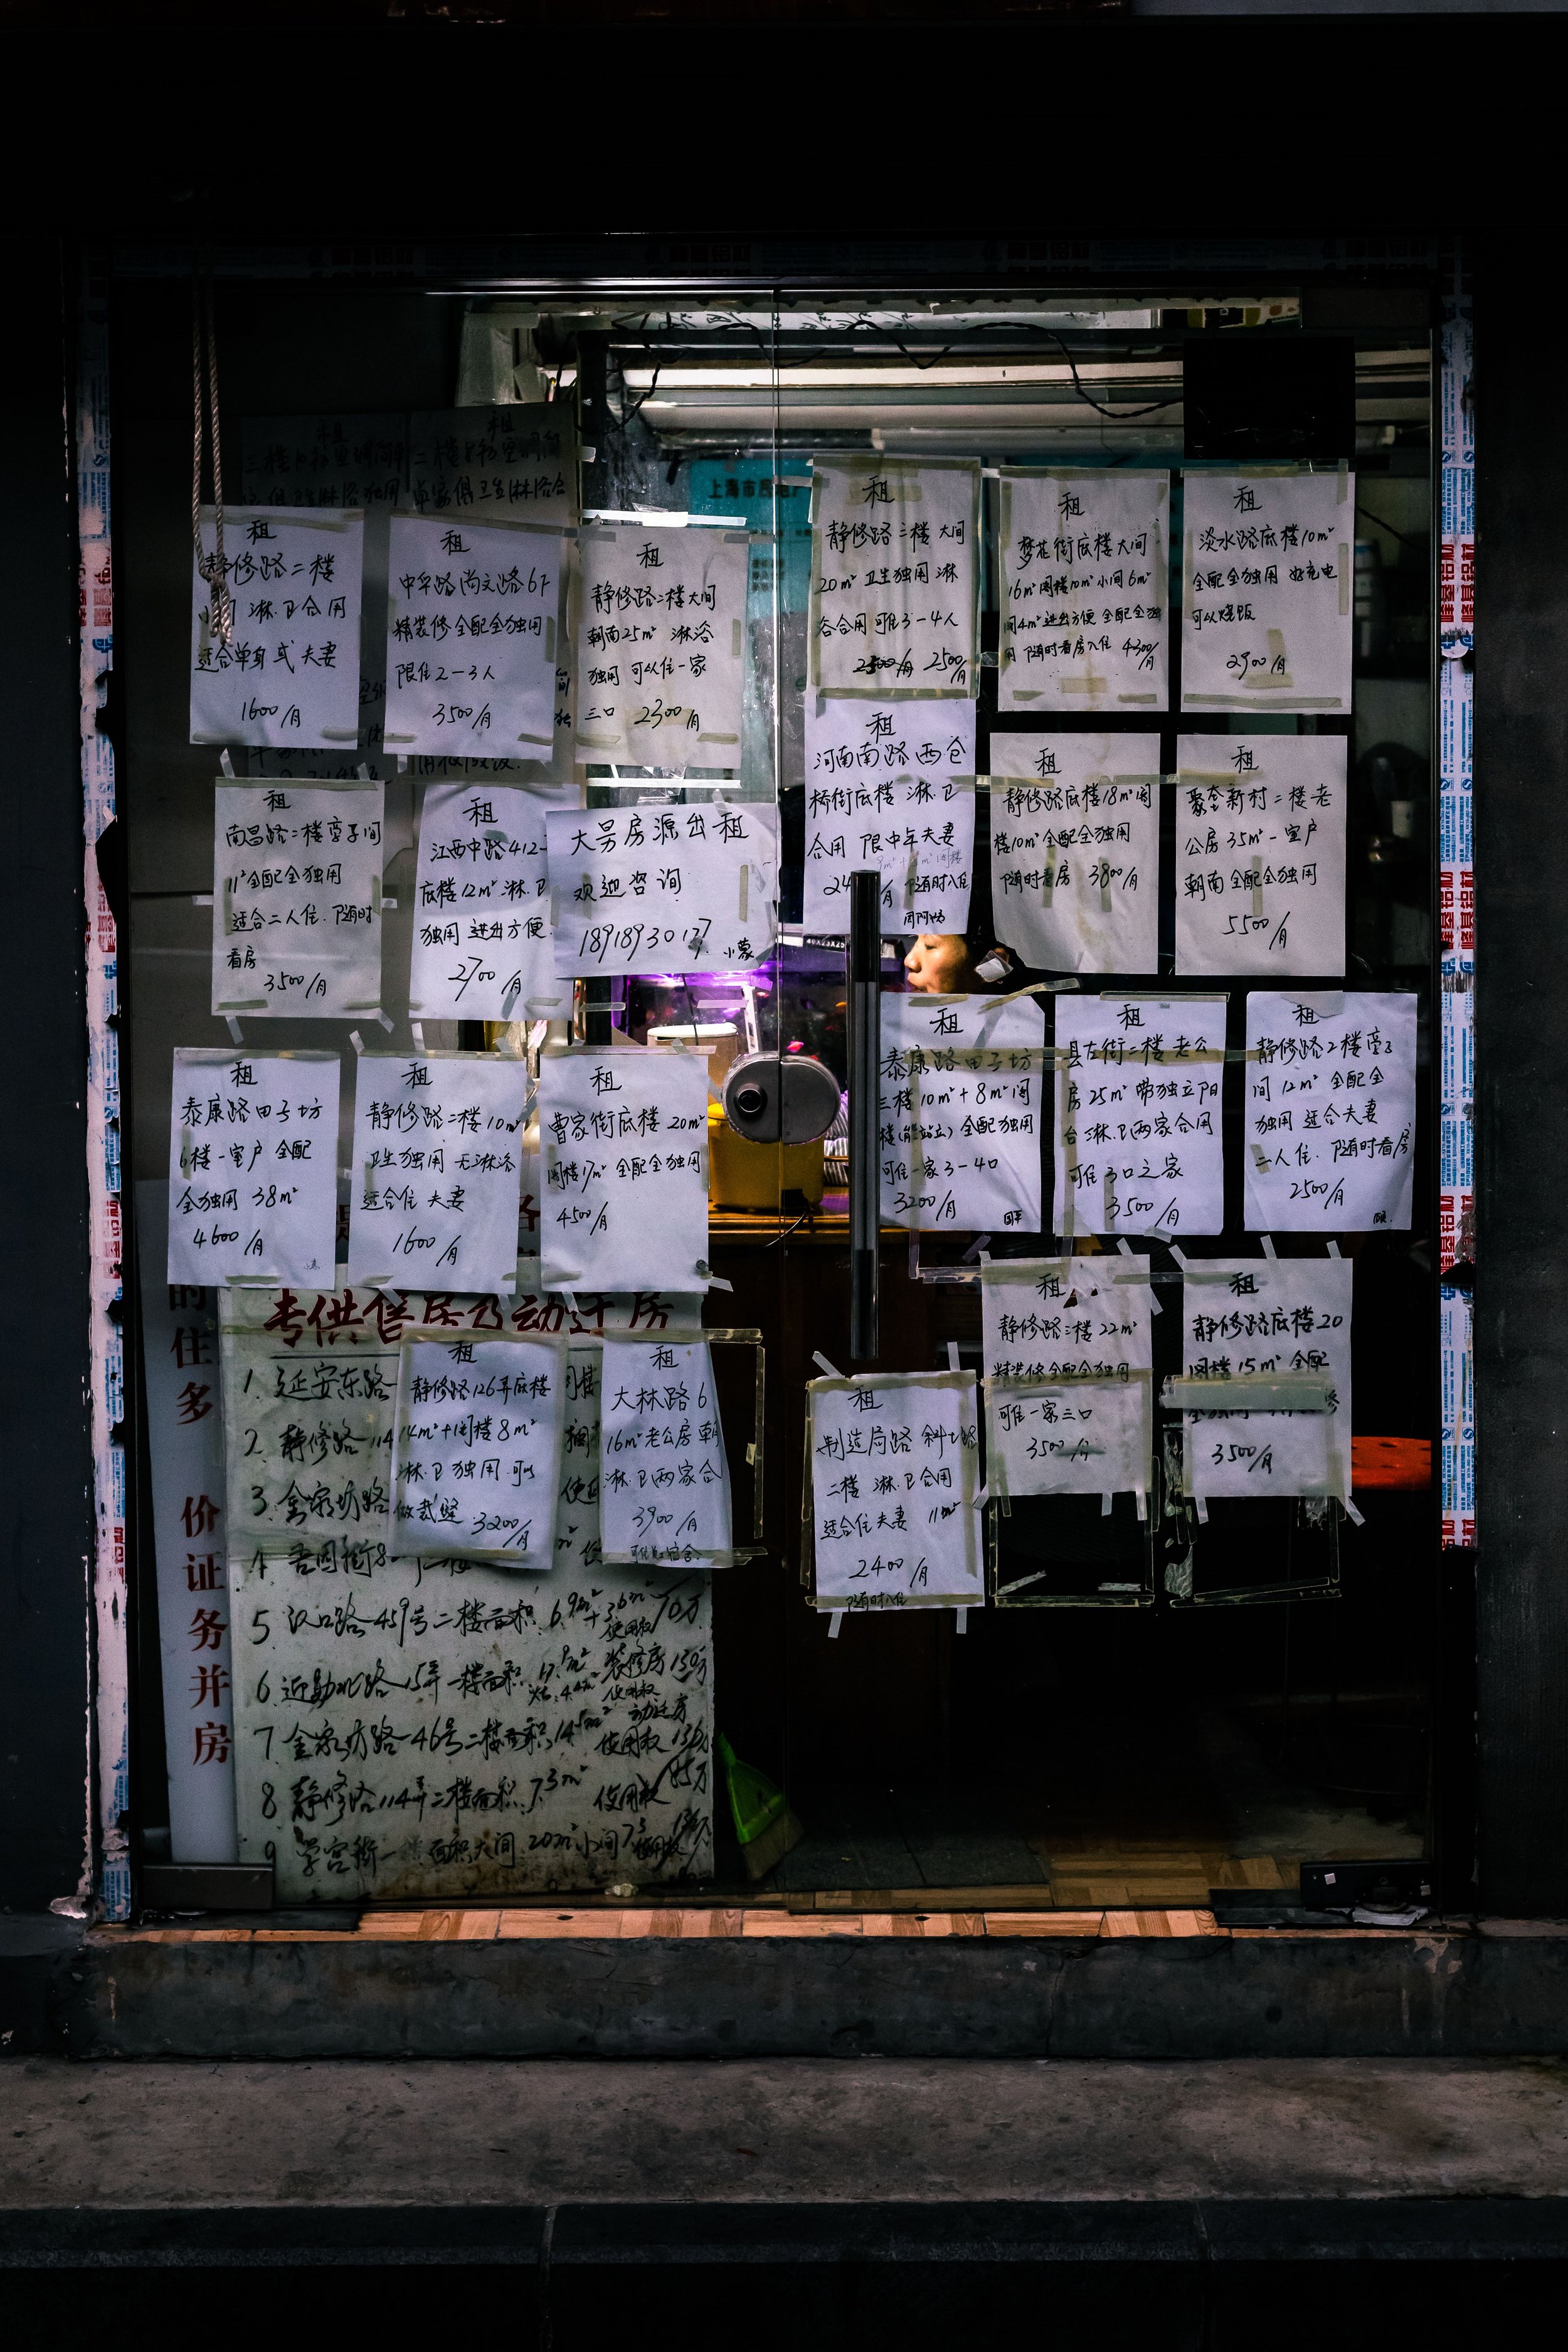 上海市民
租
静修路二楼
淋.卫合用
适合单身或夫妻
1600/月
租
中华路尚文路67
精装修全配全独用
限住2-3人
3500/月
租
静修路二楼大间
朝南25m² 淋浴
独用 可以住一家
三口 2300/月
租
静修路三楼大间
20m² 卫生独用 淋
浴合用 可住3-4人
2500/月
租
梦花街底楼大间
16m²阁楼10m²小间6m²
间4m²进出方便 全配全独
用 随时看房入住 4300/月
租
淡水路底楼10m²
全配全独用 好充电
可以烧饭
2900/月
租
南昌路二楼亭子间
11²全配全独用
适合二人住.随时
看房
3500/月
租
江西中路412-
底楼12m²淋.卫
独用 进出方便
2700/月
大量房源出租
欢迎咨询
18918930137
租
河南南路西仓
桥街底楼 淋.卫
合用 限中年夫妻
随时入住
租
静修路底楼18m²阁
楼10m²全配全独用
随时看房 3800/月
租
聚奎新村二楼老
公房35m²一室户
朝南全配全独用
5500/月
租
泰康路田子坊
6楼一室户 全配
全独用 38m²
4600/月
租
静修路二楼10m²
卫生独用 无淋浴
适合住 夫妻
1600/月
租
曹家街底楼20m²
阁楼17m² 全配全独用
4500/月
租
泰康路田子坊
三楼10m²+8m²阁
楼(能站立)全配独用
可住一家3-4口
3200/月
租
县左街二楼老公
房25m²带独立阳
台淋.卫两家合用
可住3口之家
3500/月
租
静修路2楼亭子
间12m²全配全
独用 适合夫妻
二人住.随时看房
2500/月
租
静修路三楼22m²
精装修全配全独用
可住一家三口
3500/月
租
静修路底楼20
阁楼15m²全配
3500/月
租
静修路126弄底楼
14m²+阁楼8m²
淋.卫独用.可以
做裁缝 3200/月
租
大林路6
16m²老公房朝
淋.卫两家合
3900/月
租
制造局路 斜土路
二楼 淋.卫合用
适合住夫妻 11m²
2400/月
随时入住
专供售后及动迁房
1.延安东路
2.静修路114
3.金家坊路
4.吾园街8
5.汉口路459号二楼面积6.9m²+3.6m² 使用权 70万
6.近勋北路15弄一楼面积17.9m² 装修房 130万
使用权
动迁房
7 金家坊路46号二楼面积14.5m² 使用权 136万
8 静修路114弄二楼面积7.3m² 使用权 85万
9 学宫街 面积大间20m²小间7.3 使用权
的住多
价证务并房